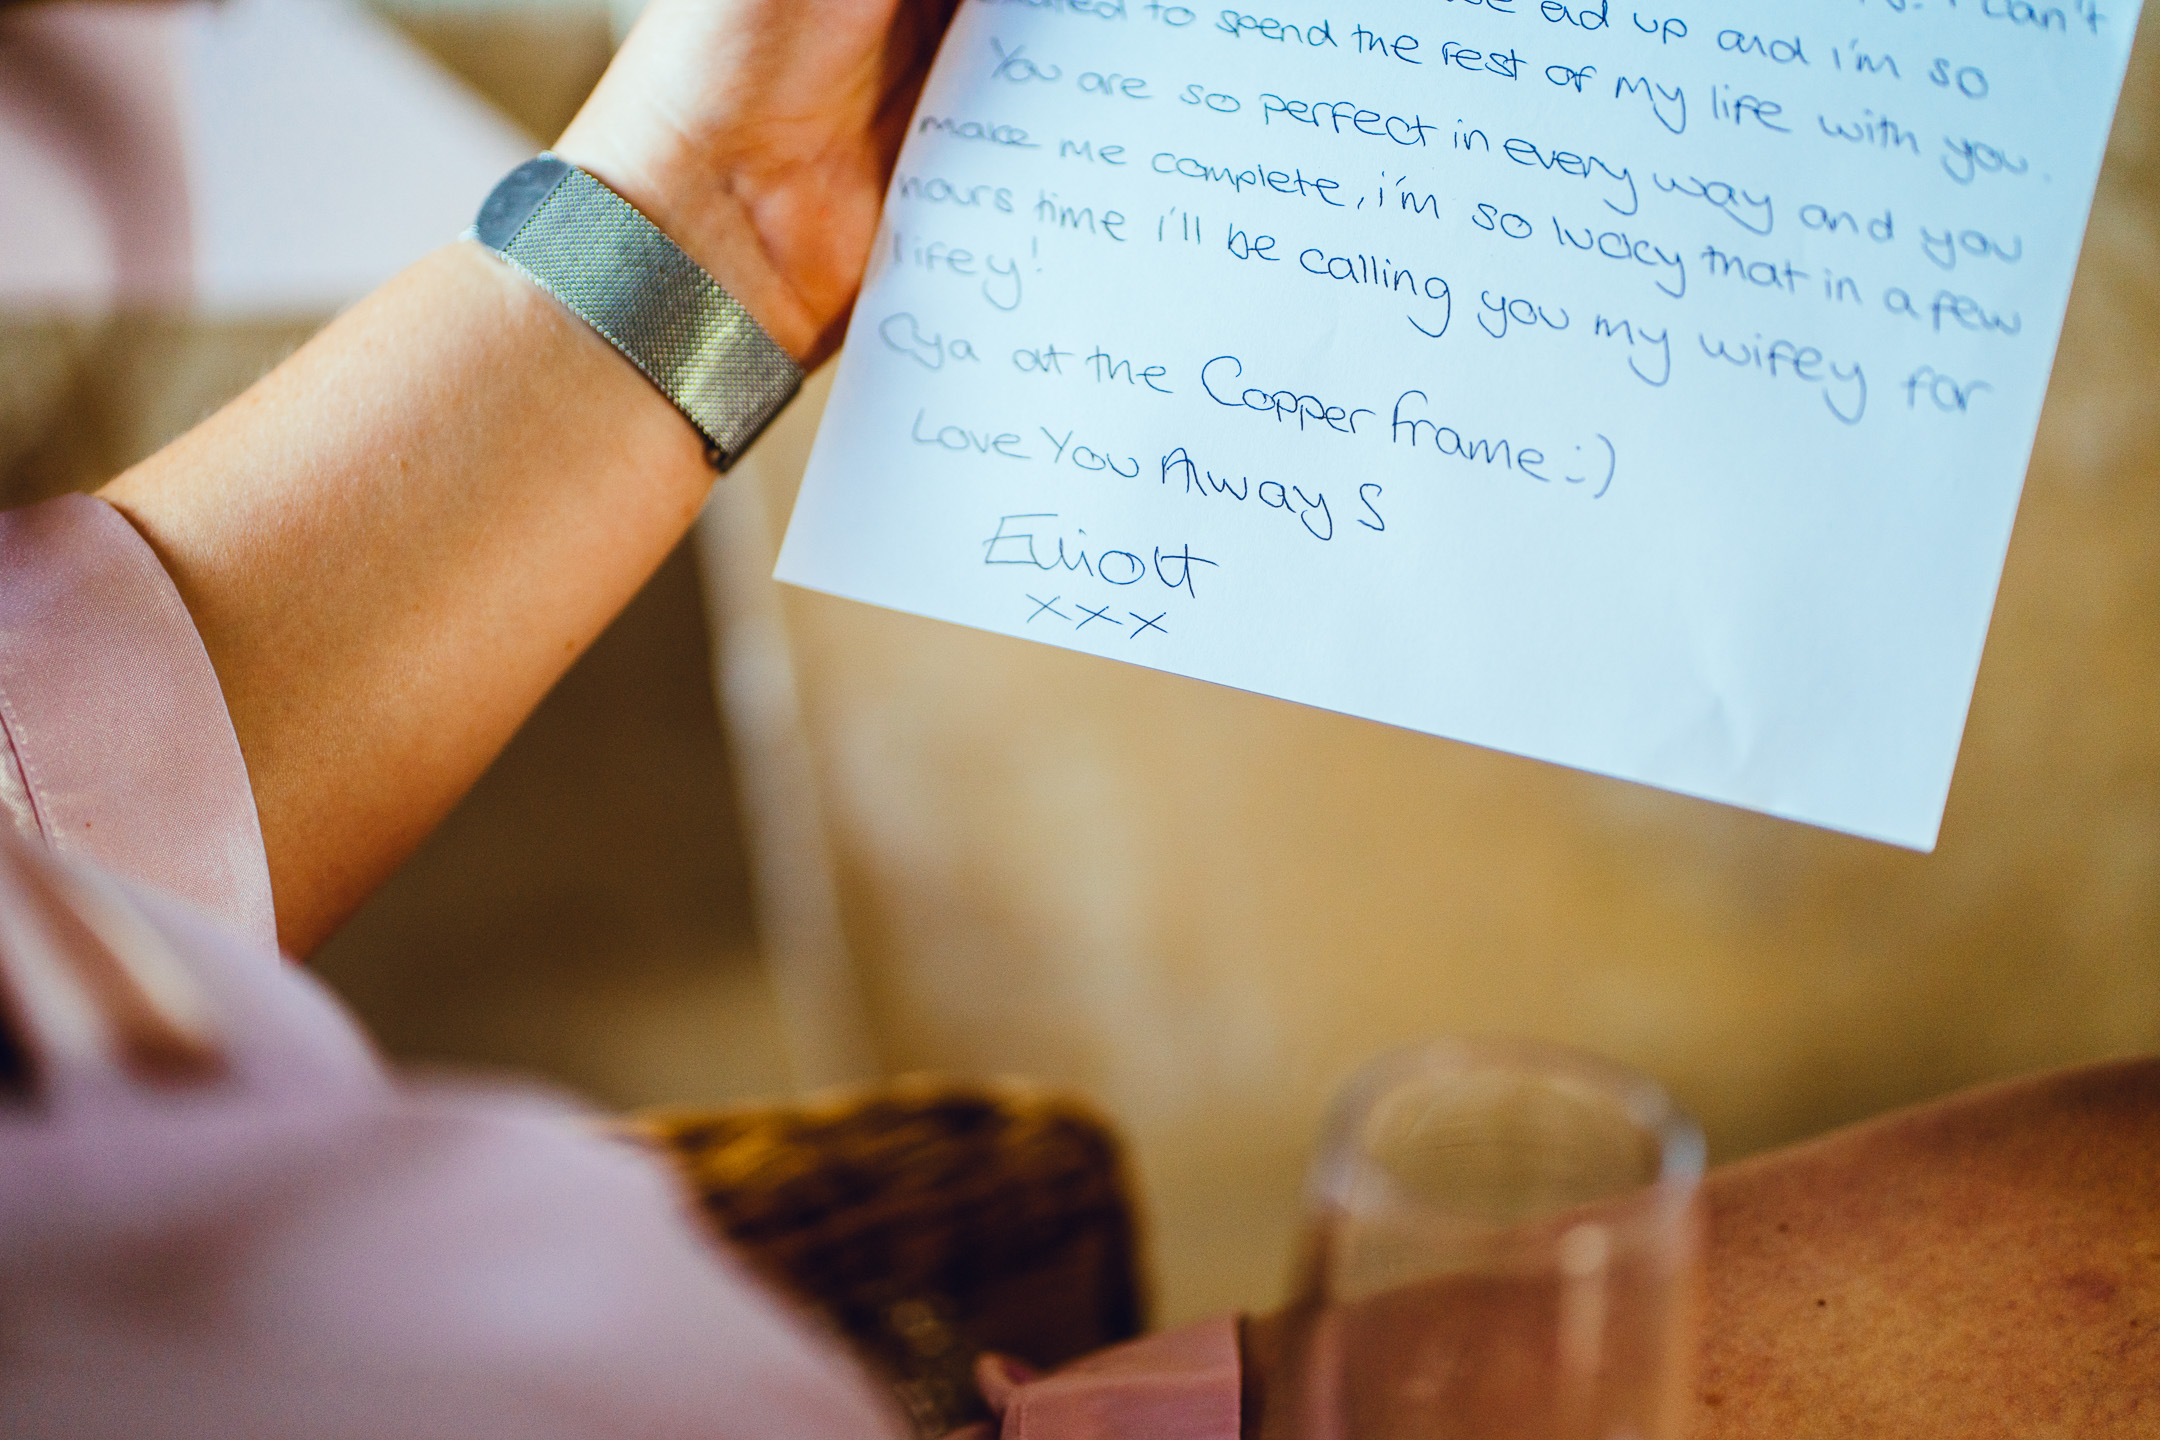 can't
ed up and i'm so
to spend the rest of my life with you.
You are so perfect in every way and you
make me complete, i'm so lucky that in a few
hours time i'll be calling you my wifey for
lifey!
Cya at the Copper frame :)
Love You Always
Elliott
xxx